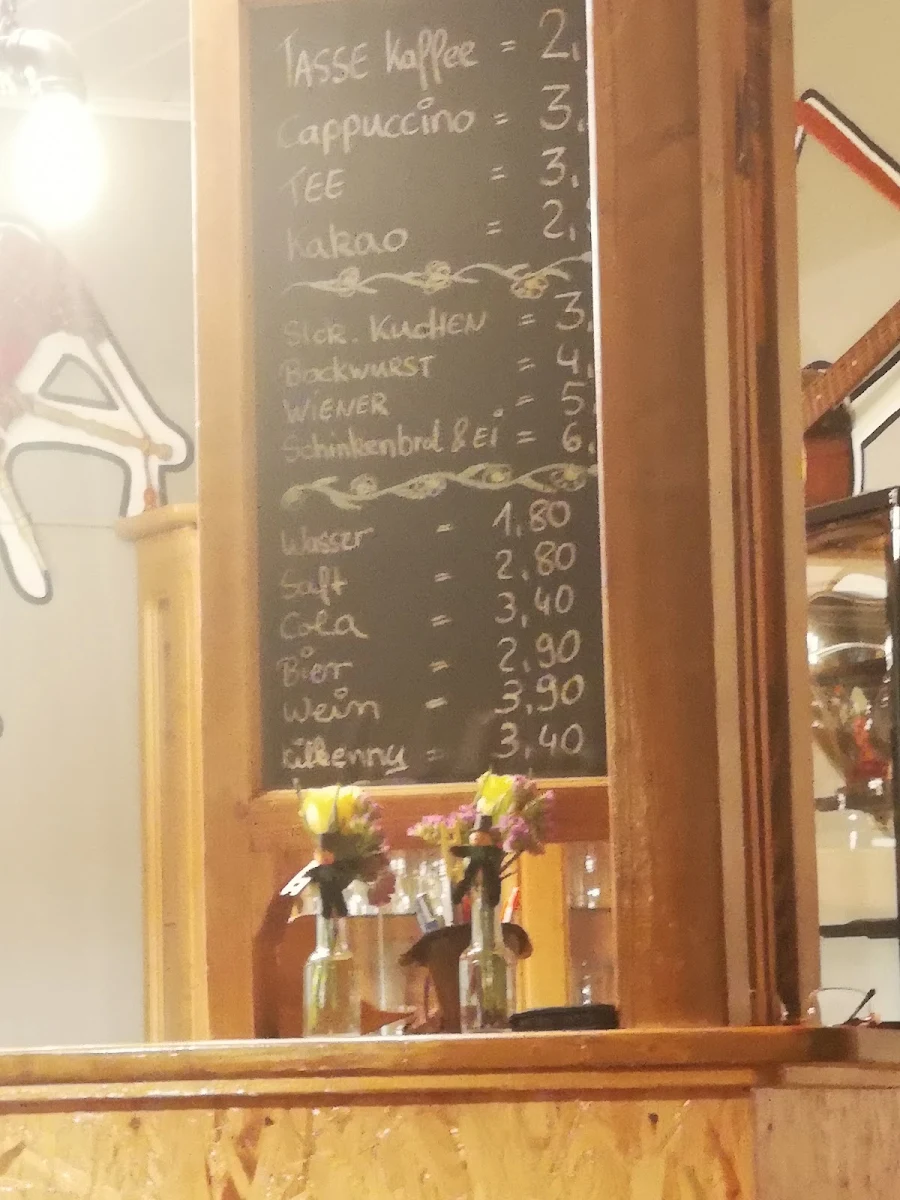 TASSE Kaffee = 2,
Cappuccino = 3,
TEE = 3,
Kakao = 2,
Stck. KUCHEN = 3,
BockWURST = 4,
WiENER = 5,
Schinkenbrot & Ei = 6,
Wasser = 1,80
Saft = 2,80
Cola = 3,40
Bier = 2,90
Wein = 3,90
Kilkenny = 3,40